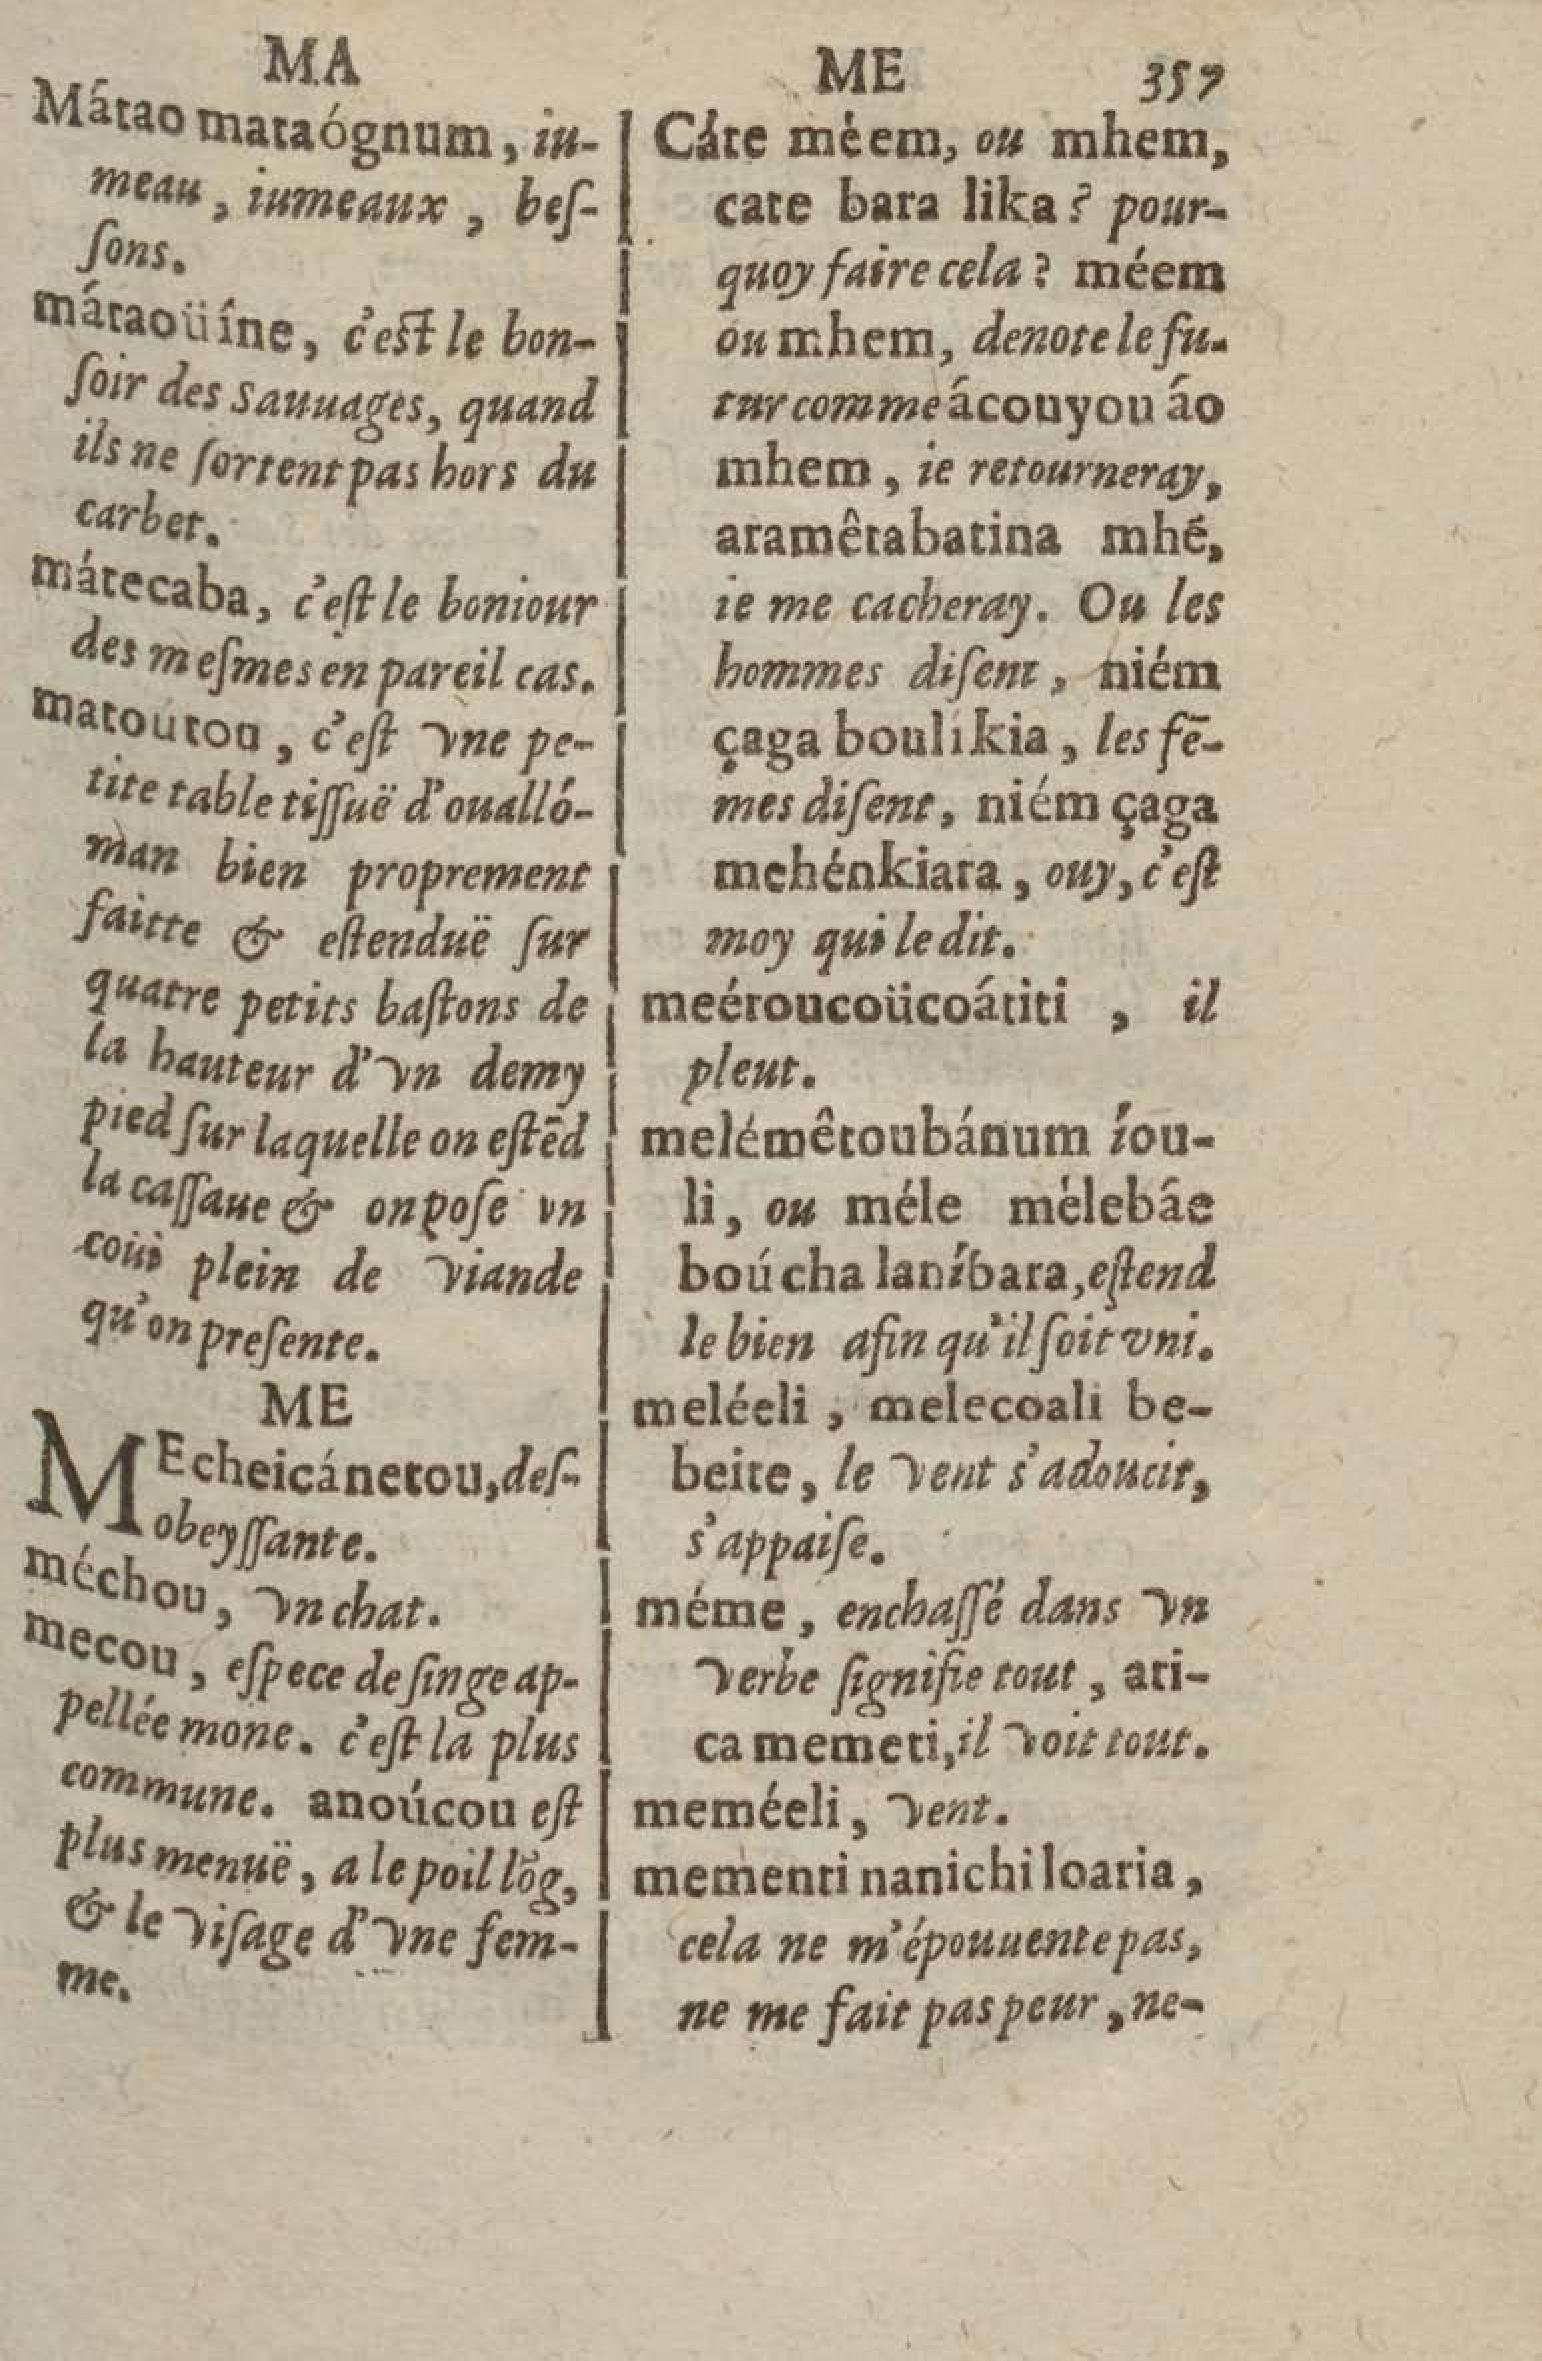 MA
Mátao mataógnum, iu-
meau, iumeaux, beſ-
ſons.
mátaoüîne, c'eſt le bon-
ſoir des Sauuages, quand
ils ne ſortent pas hors du
carbet.
mátecaba, c'eſt le boniour
des meſmes en pareil cas.
matoutou, c'eſt vne pe-
tite table tiſſuë d'ouálló-
man bien proprement
faitte & eſtenduë ſur
quatre petits baſtons de
la hauteur d'vn demy
pied ſur laquelle on eſtēd
la caſſaue & on poſe vn
coüi plein de viande
qu'on preſente.
ME
MEcheicánetou, deſ-
obeyſſante.
méchou, vn chat.
mecou, eſpece de ſinge ap-
pellée mone. c'eſt la plus
commune. anoúcou eſt
plus menuë, a le poil lõg,
& le viſage d'vne fem-
me.
ME 357
Cáte méem, ou mhem,
cate bara lika? pour-
quoy faire cela? méem
ou mhem, denote le fu-
tur comme ácouyou áo
mhem, ie retourneray,
aramêtabatina mhé,
ie me cacheray. Ou les
hommes diſent, niém
çaga boulíkia, les fē-
mes diſent, niém çaga
mehénkiara, ouy, c'eſt
moy qui le dit.
meéroucoücoátiti, il
pleut.
melémêtoubánum íou-
li, ou méle mélebáe
boúcha laníbara, eſtend
le bien afin qu'il ſoit vni.
meléeli, melecoali be-
beite, le vent s'adoucit,
s'appaiſe.
méme, enchaſſé dans vn
verbe ſignifie tout, ati-
ca memeti, il voit tout.
meméeli, vent.
mementi nanichi loaria,
cela ne m'épouuente pas,
ne me fait pas peur, ne-